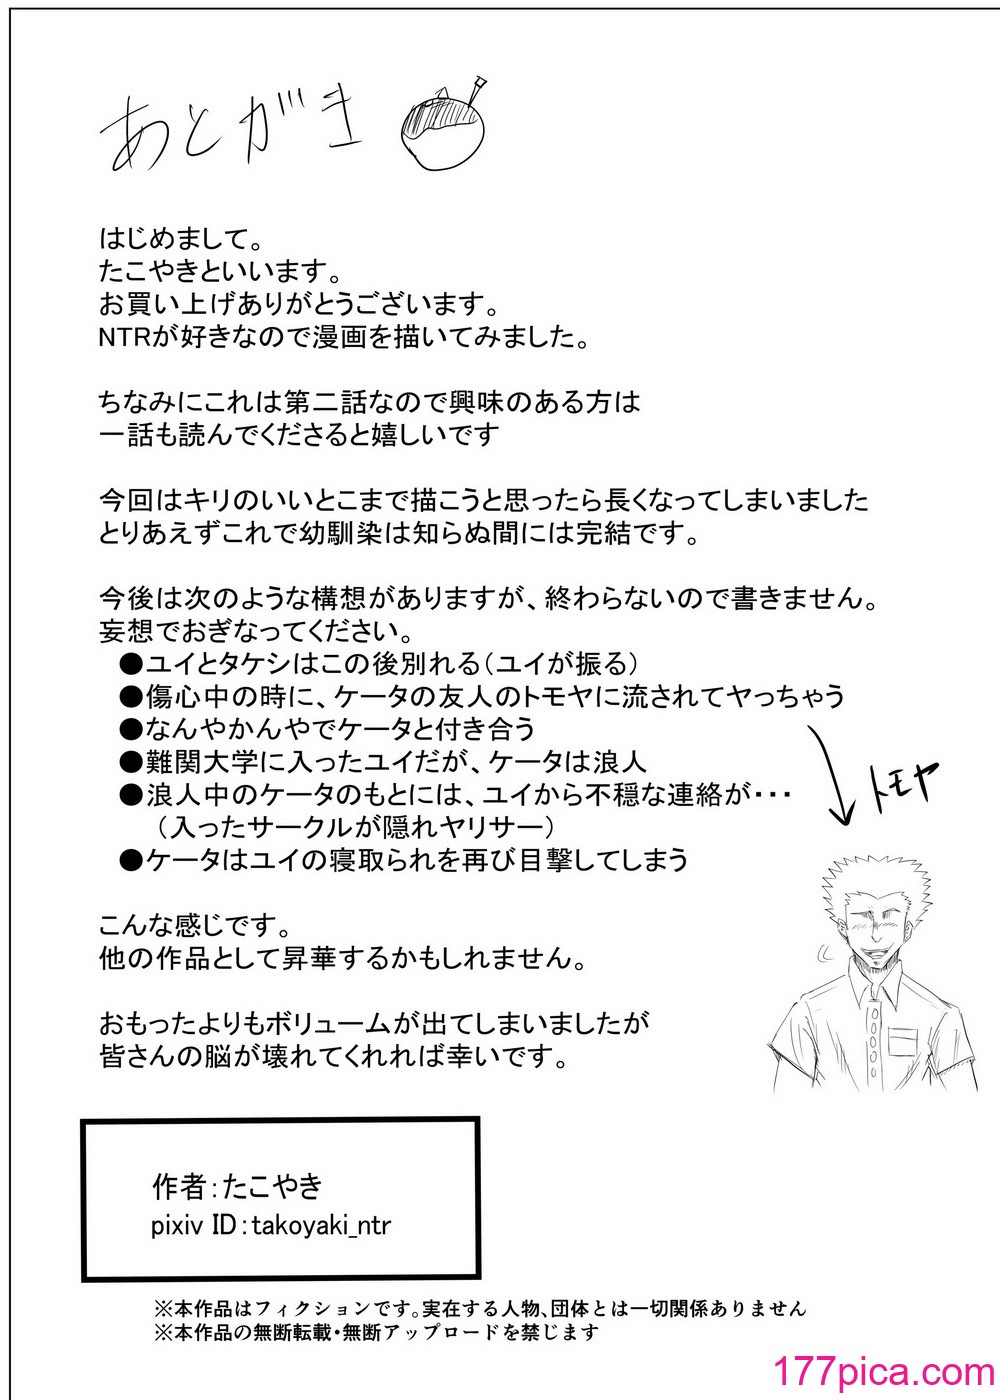 あとがき
はじめまして。
たこやきといいます。
お買い上げありがとうございます。
NTRが好きなので漫画を描いてみました。
ちなみにこれは第二話なので興味のある方は
一話も読んでくださると嬉しいです
今回はキリのいいとこまで描こうと思ったら長くなってしまいました
とりあえずこれで幼馴染は知らぬ間には完結です。
今後は次のような構想がありますが、終わらないので書きません。
妄想でおぎなってください。
●ユイとタケシはこの後別れる（ユイが振る）
●傷心中の時に、ケータの友人のトモヤに流されてヤっちゃう
●なんやかんやでケータと付き合う
●難関大学に入ったユイだが、ケータは浪人
●浪人中のケータのもとには、ユイから不穏な連絡が・・・
（入ったサークルが隠れヤリサー）
●ケータはユイの寝取られを再び目撃してしまう
トモヤ
こんな感じです。
他の作品として昇華するかもしれません。
おもったよりもボリュームが出てしまいましたが
皆さんの脳が壊れてくれれば幸いです。
作者：たこやき
pixiv ID：takoyaki_ntr
※本作品はフィクションです。実在する人物、団体とは一切関係ありません
※本作品の無断転載・無断アップロードを禁じます
177pica.com